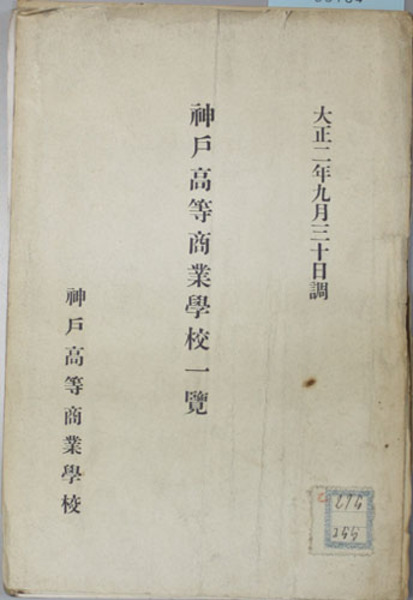 大正二年九月三十日調
神戶高等商業學校一覽
神戶高等商業學校